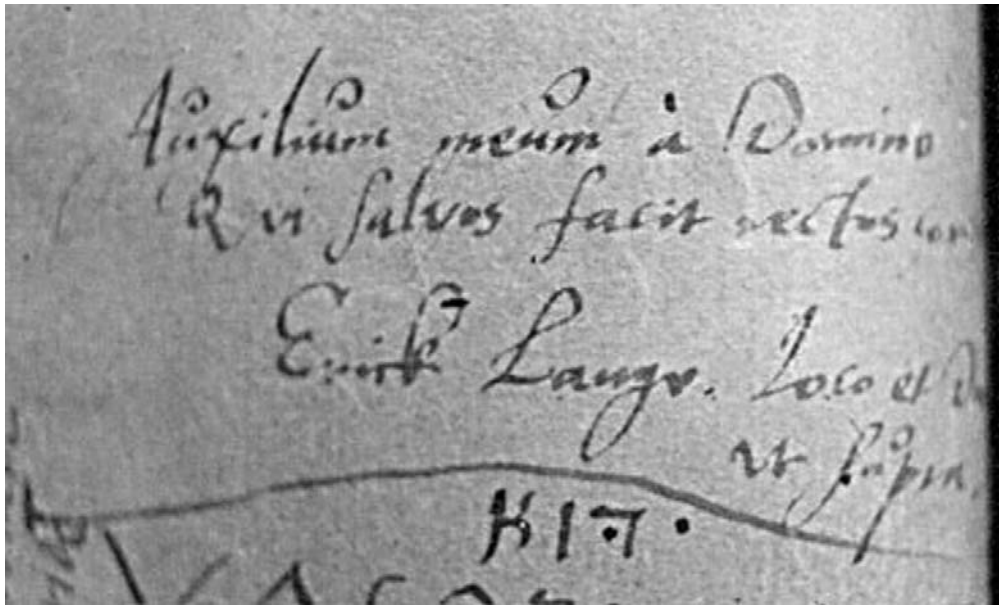 Auxilium meum à Domino
Qui salvos facit rectos
Erick Lange. Loco et
ut supra.